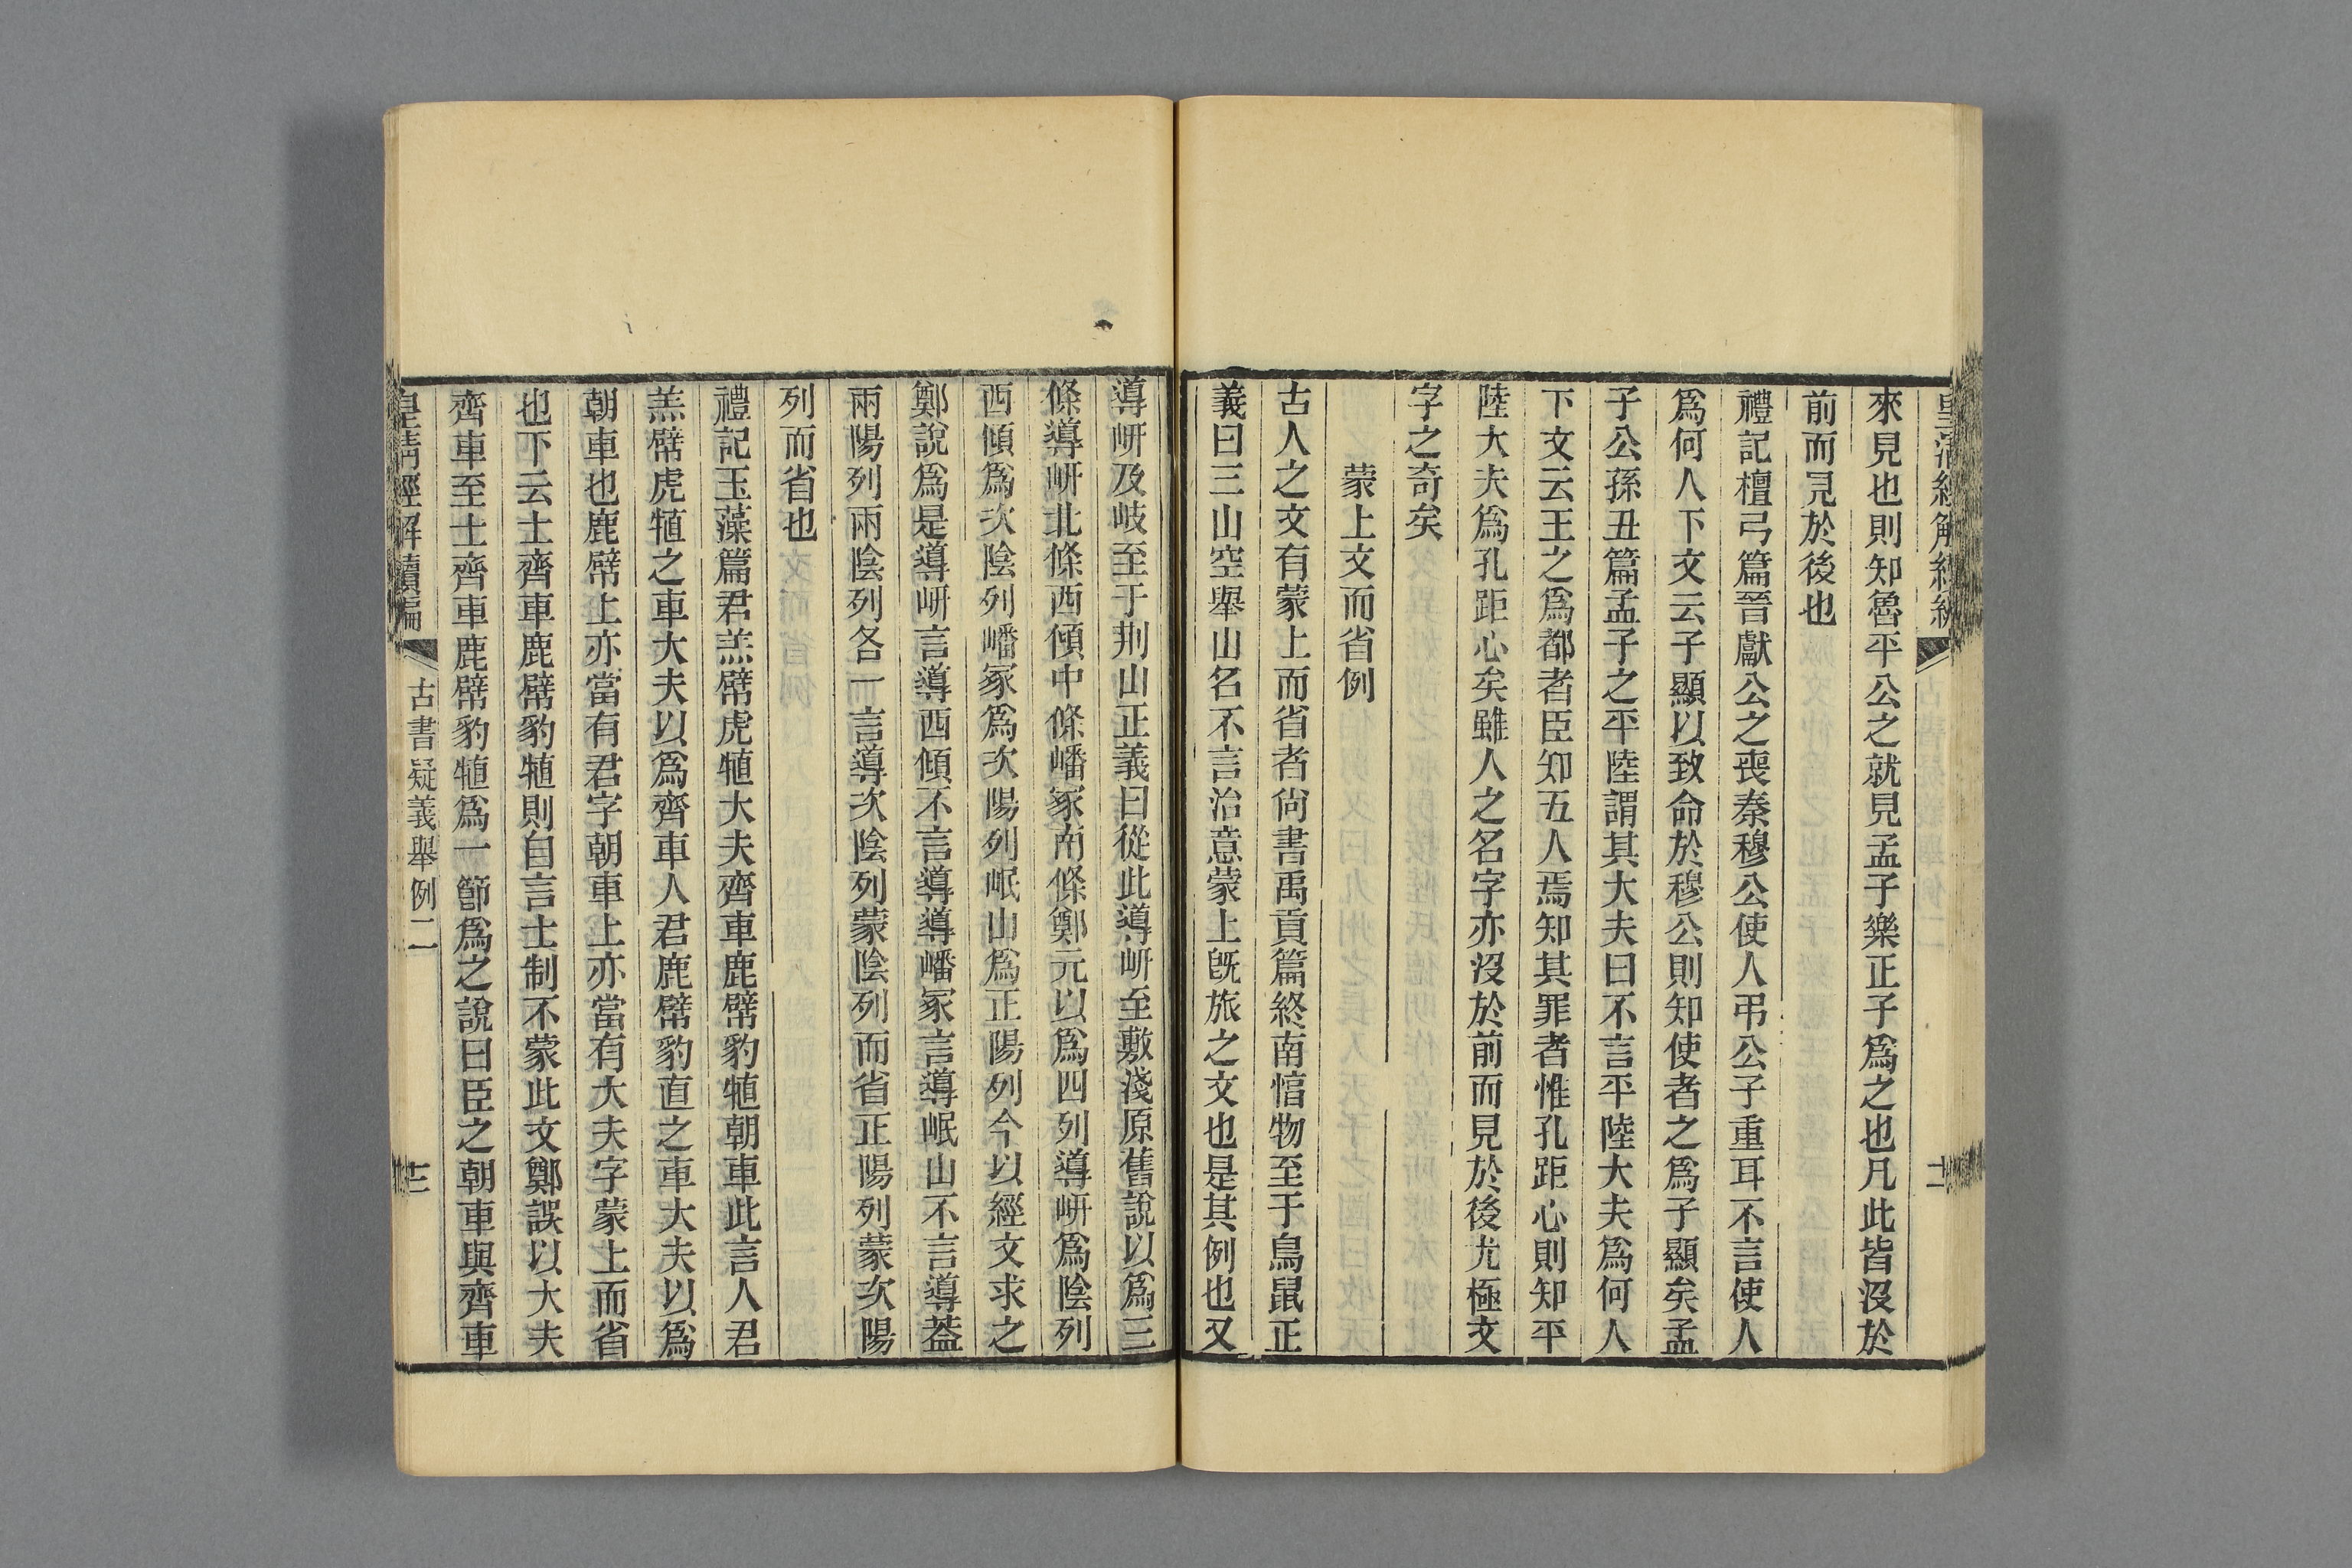 來見也則知魯平公之就見孟子樂正子爲之也凡此皆沒於
前而見於後也
禮記檀弓篇晉獻公之喪秦穆公使人弔公子重耳不言使人
爲何人下文云子顯以致命於穆公則知使者之爲子顯矣孟
子公孫丑篇孟子之平陸謂其大夫曰不言平陸大夫爲何人
下文云王之爲都者臣知五人焉知其罪者惟孔距心則知平
陸大夫爲孔距心矣雖人之名字亦沒於前而見於後尤極文
字之奇矣
蒙上文而省例
古人之文有蒙上而省者尙書禹貢篇終南惇物至于鳥鼠正
義曰三山空舉山名不言治意蒙上旣旅之文也是其例也又
導岍及岐至于荆山正義曰從此導岍至敷淺原舊說以爲三
條導岍北條西傾中條嶓冢南條鄭元以爲四列導岍爲陰列
西傾爲次陰列嶓冢爲次陽列岷山爲正陽列今以經文求之
鄭說爲是導岍言導西傾不言導導嶓冢言導岷山不言導葢
兩陽列兩陰列各一言導次陰列蒙陰列而省正陽列蒙次陽
列而省也
禮記玉藻篇君羔幦虎犆大夫齊車鹿幦豹犆朝車此言人君
羔幦虎犆之車大夫以爲齊車人君鹿幦豹直之車大夫以爲
朝車也鹿幦上亦當有君字朝車上亦當有大夫字蒙上而省
也下云士齊車鹿幦豹犆則自言士制不蒙此文鄭誤以大夫
齊車至士齊車鹿幦豹犆爲一節爲之說曰臣之朝車與齊車
皇清經解續編
古書疑義舉例二